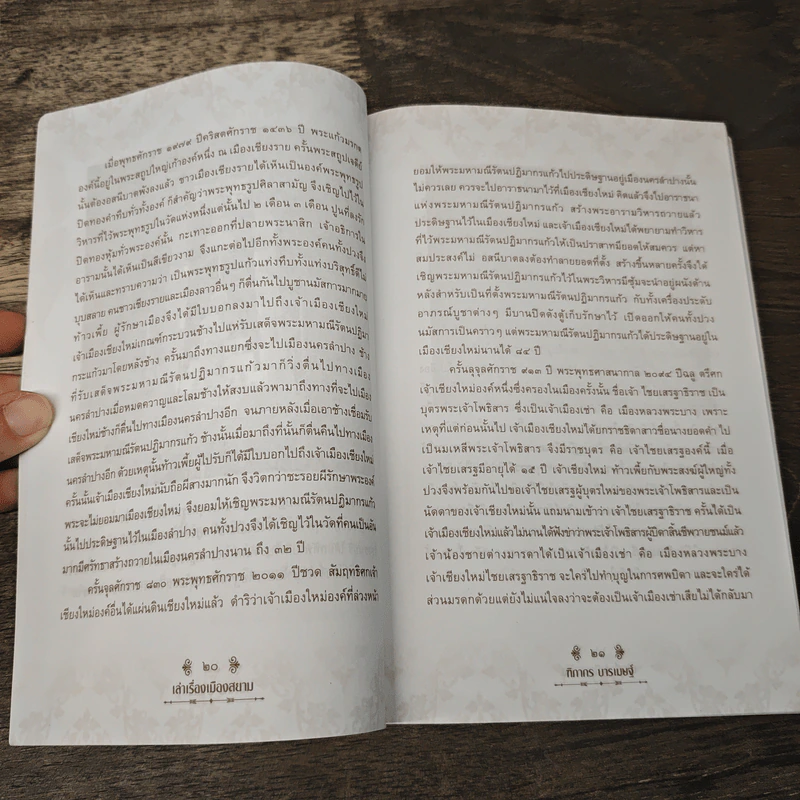 เมื่อพุทธศักราช ๑๙๗๙ ปีคริสตศักราช ๑๔๓๖ ปี พระแก้วมรกต
องค์นี้อยู่ในพระสถูปใหญ่เก่าองค์หนึ่ง ณ เมืองเชียงราย ครั้นพระสถูปเจดีย์
นั้นต้องอสนีบาตพังลงแล้ว ชาวเมืองเชียงรายได้เห็นเป็นองค์พระพุทธรูป
ปิดทองคำทึบทั่วทั้งองค์ ก็สำคัญว่าพระพุทธรูปศิลาสามัญ จึงเชิญไปไว้ใน
วิหารที่ไว้พระพุทธรูปในวัดแห่งหนึ่งแต่นั้นไป ๒ เดือน ๓ เดือน ปูนที่ลงรัก
ปิดทองหุ้มทั่วพระองค์นั้น กะเทาะออกที่ปลายพระนาสิก เจ้าอธิการใน
อารามนั้นได้เห็นเป็นสีเขียวงาม จึงแกะต่อไปอีกทั้งพระองค์คนทั้งปวงจึง
ได้เห็นและทราบความว่า เป็นพระพุทธรูปแก้วแท่งทึบทั้งแท่งบริสุทธิ์ดีไม่
บุบสลาย คนชาวเชียงรายและเมืองลาวอื่นๆ ก็ตื่นกันไปบูชานมัสการมากมาย
ท้าวเพี้ย ผู้รักษาเมืองจึงได้มีใบบอกลงมาไปถึงเจ้าเมืองเชียงใหม่
เจ้าเมืองเชียงใหม่เกณฑ์กระบวนช้างไปแห่รับเสด็จพระมหามณีรัตนปฏิมา
กรแก้วมาโดยหลังช้าง ครั้นมาถึงทางแยกซึ่งจะไปเมืองนครลำปาง ช้าง
ที่รับเสด็จพระมหามณีรัตนปฏิมากรแก้วมาก็วิ่งตื่นไปทางเมือง
นครลำปางเมื่อหมดควาญและโลมช้างให้สงบแล้วพามาถึงทางที่จะไปเมือง
เชียงใหม่ช้างก็ตื่นไปทางเมืองนครลำปางอีก จนภายหลังเมื่อเอาช้างเชื่อมรับ
เสด็จพระมหามณีรัตนปฏิมากรแก้ว ช้างนั้นเมื่อมาถึงที่นั้นก็ตื่นคืนไปทางเมือง
นครลำปางอีก ด้วยเหตุนั้นท้าวเพี้ยผู้ไปรับก็ได้มีใบบอกไปถึงเจ้าเมืองเชียงใหม่
ครั้นนั้นเจ้าเมืองเชียงใหม่นับถือผีสางมากนัก จึงวิตกว่าชะรอยผีรักษาพระองค์
พระจะไม่ยอมมาเมืองเชียงใหม่ จึงยอมให้เชิญพระมหามณีรัตนปฏิมากรแก้ว
นั้นไปประดิษฐานไว้ในเมืองลำปาง คนทั้งปวงจึงได้เชิญไว้ในวัดที่คนเป็นอัน
มากมีศรัทธาสร้างถวายในเมืองนครลำปางนาน ถึง ๓๒ ปี
ครั้นจุลศักราช ๘๓๐ พระพุทธศักราช ๒๐๑๑ ปีชวด สัมฤทธิศกเจ้า
เชียงใหม่องค์อื่นได้แผ่นดินเชียงใหม่แล้ว ดำริว่าเจ้าเมืองใหม่องค์ที่ล่วงหน้า
๒๐
เล่าเรื่องเมืองสยาม
ยอมให้พระมหามณีรัตนปฏิมากรแก้วไปประดิษฐานอยู่เมืองนครลำปางนั้น
ไม่ควรเลย ควรจะไปอาราธนามาไว้ที่เมืองเชียงใหม่ คิดแล้วจึงไปอาราธนา
พระมหามณีรัตนปฏิมากรแก้ว สร้างพระอารามวิหารถวายแล้ว
ประดิษฐานไว้ในเมืองเชียงใหม่ และเจ้าเมืองเชียงใหม่ได้พยายามทำวิหาร
ที่ไว้พระมหามณีรัตนปฏิมากรแก้วให้เป็นปราสาทมียอดให้สมควร แต่หา
สมประสงค์ไม่ อสนีบาตลงต้องทำลายยอดที่ตั้ง สร้างขึ้นหลายครั้งจึงได้
เชิญพระมหามณีรัตนปฏิมากรแก้วไว้ในพระวิหารมีซุ้มจะนำอยู่ผนังด้าน
หลังสำหรับเป็นที่ตั้งพระมหามณีรัตนปฏิมากรแก้ว กับทั้งเครื่องประดับ
อาภรณ์บูชาต่างๆ มีบานปิดดังตู้เก็บรักษาไว้ เปิดออกให้คนทั้งปวง
นมัสการเป็นคราวๆ แต่พระมหามณีรัตนปฏิมากรแก้วได้ประดิษฐานอยู่ใน
เมืองเชียงใหม่นานได้ ๘๔ ปี
ครั้นลุจุลศักราช ๙๑๓ ปี พระพุทธศาสนากาล ๒๐๙๔ ปีฉลู ตรีศก
เจ้าเมืองเชียงใหม่องค์หนึ่งซึ่งครองในเมืองครั้งนั้น ชื่อเจ้า ไชยเสรฐาธิราช เป็น
บุตรพระเจ้าโพธิสาร ซึ่งเป็นเจ้าเมืองเซ่า คือ เมืองหลวงพระบาง เพราะ
เหตุที่แต่ก่อนนั้นไป เจ้าเมืองเชียงใหม่ได้ยกราชธิดาสาวชื่อนางยอดคำ ไป
เป็นมเหสีพระเจ้าโพธิสาร จึงมีราชบุตร คือ เจ้าไชยเสรฐองค์นี้ เมื่อ
เจ้าไชยเสรฐมีอายุได้ ๑๕ ปี เจ้าเชียงใหม่ ท้าวเพี้ยกับพระสงฆ์ผู้ใหญ่ทั้ง
ปวงจึงพร้อมกันไปขอเจ้าไชยเสรฐผู้บุตรใหม่ของพระเจ้าโพธิสารและเป็น
นัดดาของเจ้าเชียงใหม่นั้น แถมนามเข้าว่า เจ้าไชยเสรฐาธิราช ครั้นได้เป็น
เจ้าเมืองเชียงใหม่แล้วไม่นานได้ฟังข่าวว่าพระเจ้าโพธิสารผู้บิดาสิ้นชีพวายชนม์แล้ว
เจ้าน้องชายต่างมารดาได้เป็นเจ้าเมืองเซ่า คือ เมืองหลวงพระบาง
เจ้าเชียงใหม่ไชยเสรฐาธิราช จะใคร่ไปทำบุญในการศพบิดา และจะใคร่ได้
ส่วนมรดกด้วยแต่ยังไม่แน่ใจลงว่าจะต้องเป็นเจ้าเมืองเซ่าเสียไม่ได้กลับมา
๒๑
ทิภากร บารเมษฐ์